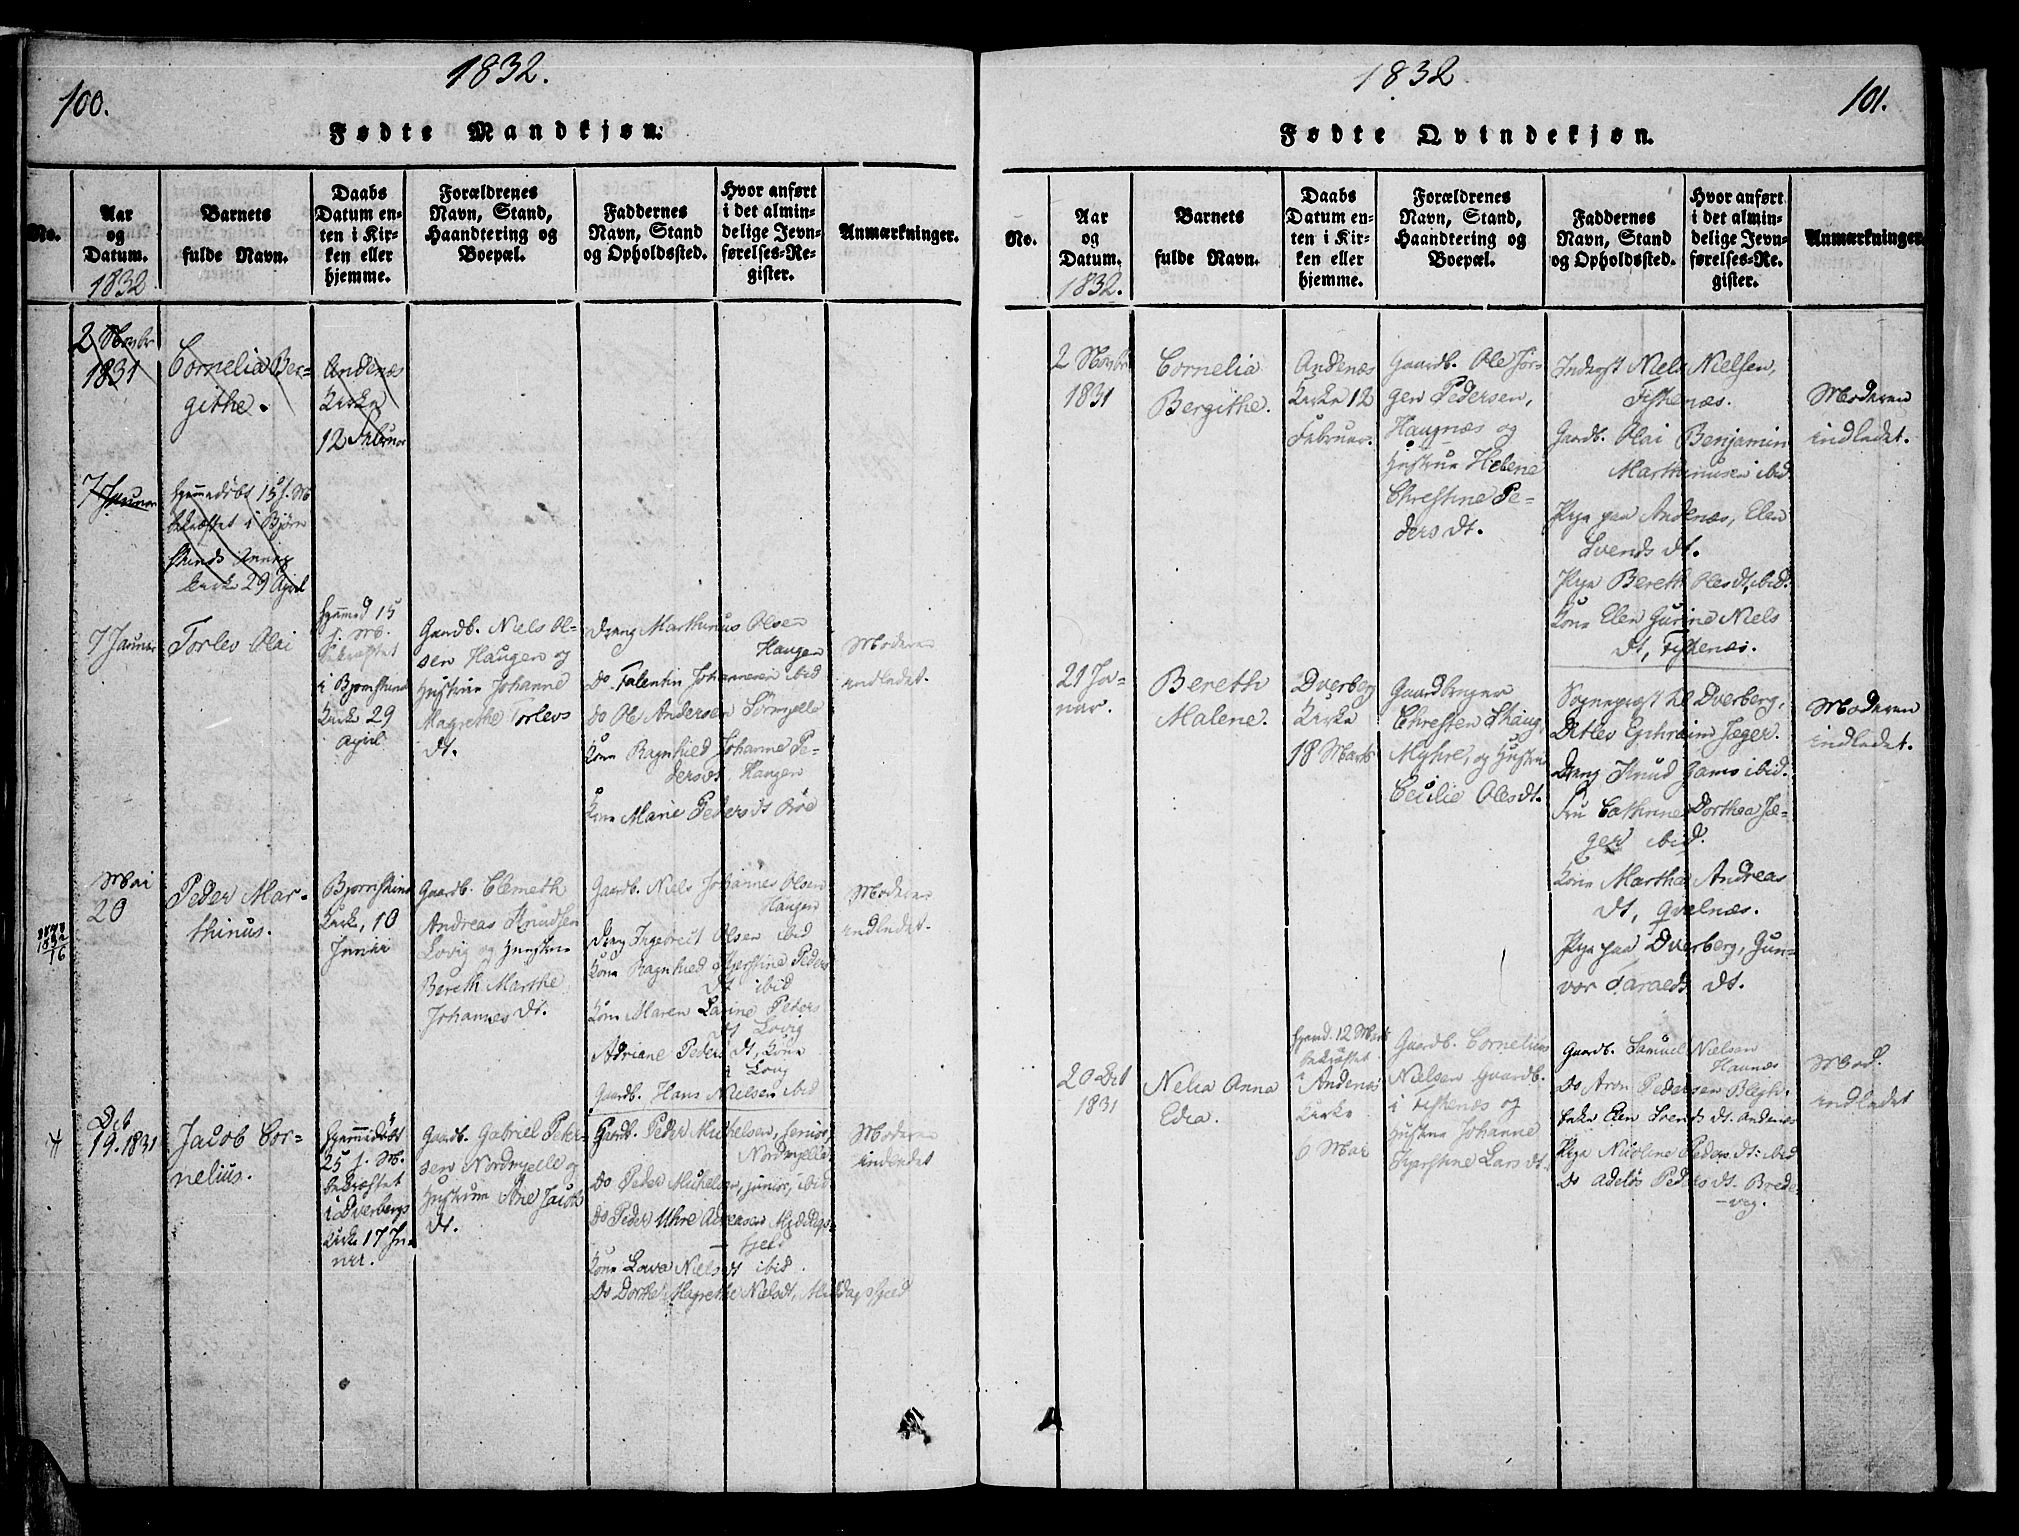 100.
1832.
Fødte Mandkjøn.
No.
Aar
og
Datum.
1832
Barnets
fulde Navn.
Daabs
Datum en-
ten i Kir-
ken eller
hjemme.
Forældrenes
Navn, Stand,
Haandtering og
Boepæl.
Faddernes
Navn, Stand
og Opholdssted.
Hvor anført
i det almin-
delige Jevn-
førelses-Re-
gister.
Anmærkninger.
2 Novbr
1831
Cornelia Ber-
githe.
Andenæs
Kirke
12 Februar
7 Januar
Hjemmedøbt 15 f. M
bekræftet i Bjørn
skinds
Kirke 29 April
7 Januar
Torlev Olai
Hjemmed 15
f. M.
bekræftet
i Bjørnskind
Kirke 29
April
Gaardb. Niels Ol-
sen Haugen og
Hustrue Johanne
Magrethe Torlevs
Dt.
Dreng Marthinus Olsen
Haugen
Do Falentin Johannesen ibid
Do Ole Andersen Sørmjelle
Kone Ragnhied Johanne Pe-
dersdt, Haugen
Kone Marie Peders dt Böe
Moderen
indledet.
Mai
20
Peder Mar-
thinus.
Bjørnskind
Kirke, 10
Junii
Gaardb. Clemeth
Andreas Knudsen
Lovig og Hustrue
Bereth Marthe
Johannes Dt.
Gaardb. Niels Johannes Olsen
Haugen
Dreng Ingebreit Olsen ibid
Kone Ragnhied Kjerstine Peders
Dt ibid
Kone Maren Larine Peders
Dt Lovig
Adriane Peders dt, Kone
Lovig
Gaardb. Hans Nielsen ibid
Moderen
indledet.
Det
19. 1831
Jacob Cor-
nelius.
Hjemmedöbt
25 f. M.
bekræftet
i Dverbergs
Kirke 17 Ju-
nii.
Gaardb. Gabriel Peter-
sen Nordmjelle og
Hustrue Ane Jacobs
Dt.
Gaardb. Peder Michelsen, senior,
Nordmjelle
Do Peder Michelsen, junior, ibid
Do Peder Uhre Adreasen Middags-
fjeld
Kone Lova Niels dt ibid.
Do Dorthe Magrethe Nielsdt, Middagsfjeld
Moderen
indledet
1832
101.
Fødte Qvindekjøn.
No.
Aar
og
Datum.
1832.
Barnets
fulde Navn.
Daabs
Datum en-
ten i Kir-
ken eller
hjemme.
Forældrenes
Navn, Stand,
Haandtering og
Boepæl.
Faddernes
Navn, Stand
og Opholdssted.
Hvor anført
i det almin-
delige Jevn-
førelses-Re-
gister.
Anmærkninger.
2 Novbr
1831
Cornelia
Bergithe.
Andenæs
Kirke 12
Februar.
Gaardb. Ole Jör-
gen Pedersen,
Haugnæs og
Hustrue Helene
Chrestine Pe-
ders dt.
Inderst Niels Nielsen,
Fiskenæs.
Gaardb. Olai Benjamin
Marthinusen ibid
Pige paa Andenæs, Elen
Svends Dt.
Pige Bereth Olesdt, ibid.
Kone Elen Gurine Niels
Dt, Fiskenæs.
Moderen
indledet.
21 Ja-
nuar.
Bereth
Malene.
Dverberg
Kirke
18 Marts
Gaardbruger
Chresten Skaug,
Myhre, og Hustrue
Cecilie Olesdt.
Sognepræst til Dverberg,
Detlev Ephraim Jæger.
Dreng Knud Gams ibid.
Fru Cathrine Dorthea Jæ-
ger ibid.
Kone Martha Andreas
Dt, Qvalnæs.
Pige paa Dverberg, Gun-
vor Taraeds Dt.
Moderen
indledet.
20 Det
1831
Nelia Anna
Edea.
Hjemd. 12 Mart
bekræftet
i Andenæs
Kirke
6 Mai
Gaardb. Cornelius
Nielsen Gaardb.
i Fiskenæs og
Hustrue Johanne
Kjerstine Lars dt.
Gaardb. Samuel Nielsen
Haunæs
Do Aron Pedersen Blegh.
Enke Elen Svends Dt. Andenæs
Pige Nicoline Peders dt: ibid
Do Adeløs Peders dt. Brede-
veg.
Mod.
indledet